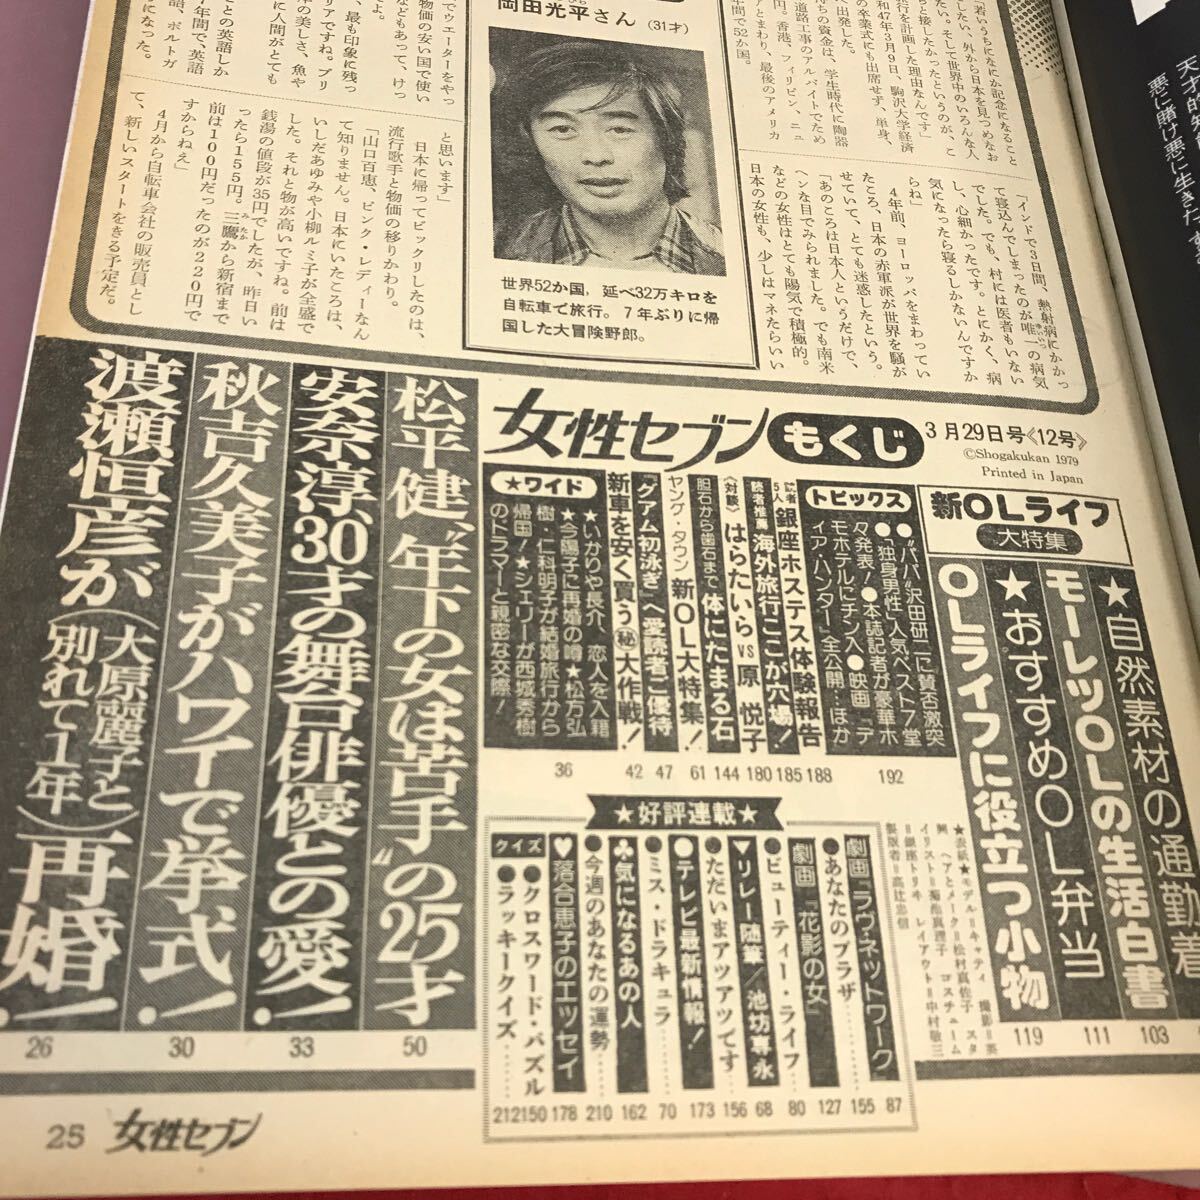 岡田光平さん（31才）
世界52か国，延べ32万キロを
自転車で旅行。7年ぶりに帰
国した大冒険野郎。
若いうちになにか記念になること
したい、外から日本を見つめなお
したい。そして世界中のいろんな人
と接したかったというのが、こ
行を計画した理由なんです」
和47年3月9日、駒沢大学経済
の卒業式にも出席せず、単身、
へ出発した。
持ちの資金は、学生時代に陶器
道路工事のアルバイトでため
円。香港、フィリピン、ニュ
アとまわり、最後のアメリカ
年間で52か国。
「インドで3日間、熱射病にかかっ
て寝込んでしまったのが唯一の病気
でした。でも、村には医者もいない
し、心細かったです。とにかく、病
気になったら寝るしかないんですか
らね」
4年前、ヨーロッパをまわってい
たころ、日本の赤軍派が世界を騒が
せていて、とても迷惑したという。
「あのころは日本人というだけで、
ヘンな目でみられました。でも南米
などの女性はとても陽気で積極的。
日本の女性も、少しはマネたらいい
と思います」
日本に帰ってビックリしたのは、
流行歌手と物価の移りかわり。
「山口百恵、ピンク・レディーなん
て知りません。日本にいたころは、
いしだあゆみや小柳ルミ子が全盛で
した。それと物が高いですね。前は
銭湯の値段が35円でしたが、昨日い
ったら155円。三鷹から新宿まで
前は100円だったのが220円で
すからねえ」
4月から自転車会社の販売員とし
て、新しいスタートをきる予定だ。
女性セブン もくじ
3月29日号《12号》
©Shogakukan 1979
Printed in Japan
新OLライフ
大特集
★自然素材の通勤着 103
モーレツOLの生活白書 111
★おすすめOL弁当
OLライフに役立つ小物 119
トピックス
●“パパ”沢田研二に賛否激突
●「独身男性」人気ベスト7堂
々発表！●本誌記者が豪華ホ
モホテルにチン入●映画『デ
ィア・ハンター』全公開…ほか
192
読者5人 銀座ホステス体験報告 188
読者推薦 海外旅行ここが穴場！ 185
〈対談〉はらたいらVS原 悦子 180
胆石から歯石まで 体にたまる石 144
ヤング・タウン 新OL大特集！ 61
『グアム初泳ぎ』へ愛読者ご優待 47
新車を安く買う㊙大作戦！ 42
★ワイド
★いかりや長介、恋人を入籍
★今陽子に再婚の噂★松方弘
樹・仁科明子が結婚旅行から
帰国！★シェリーが西城秀樹
のドラマーと親密な交際！
36
松平健、“年下の女は苦手”の25才 50
安奈淳、30才の舞台俳優との愛！ 33
秋吉久美子がハワイで挙式！ 30
渡瀬恒彦が（大原麗子と別れて1年）再婚！ 26
★好評連載★
劇画『ラヴ・ネットワーク』 87
●あなたのプラザ 155
劇画『花影の女』 127
●ビューティー・ライフ 80
▼リレー随筆／池坊専永 68
●ただいまアツアツです 156
●テレビ最新情報！ 173
●ミス・ドラキュラ 70
♣気になるあの人 162
●今週のあなたの運勢 210
♥落合恵子のエッセイ 178
クイズ
●クロスワード・パズル 150
●ラッキークイズ 212
25 女性セブン